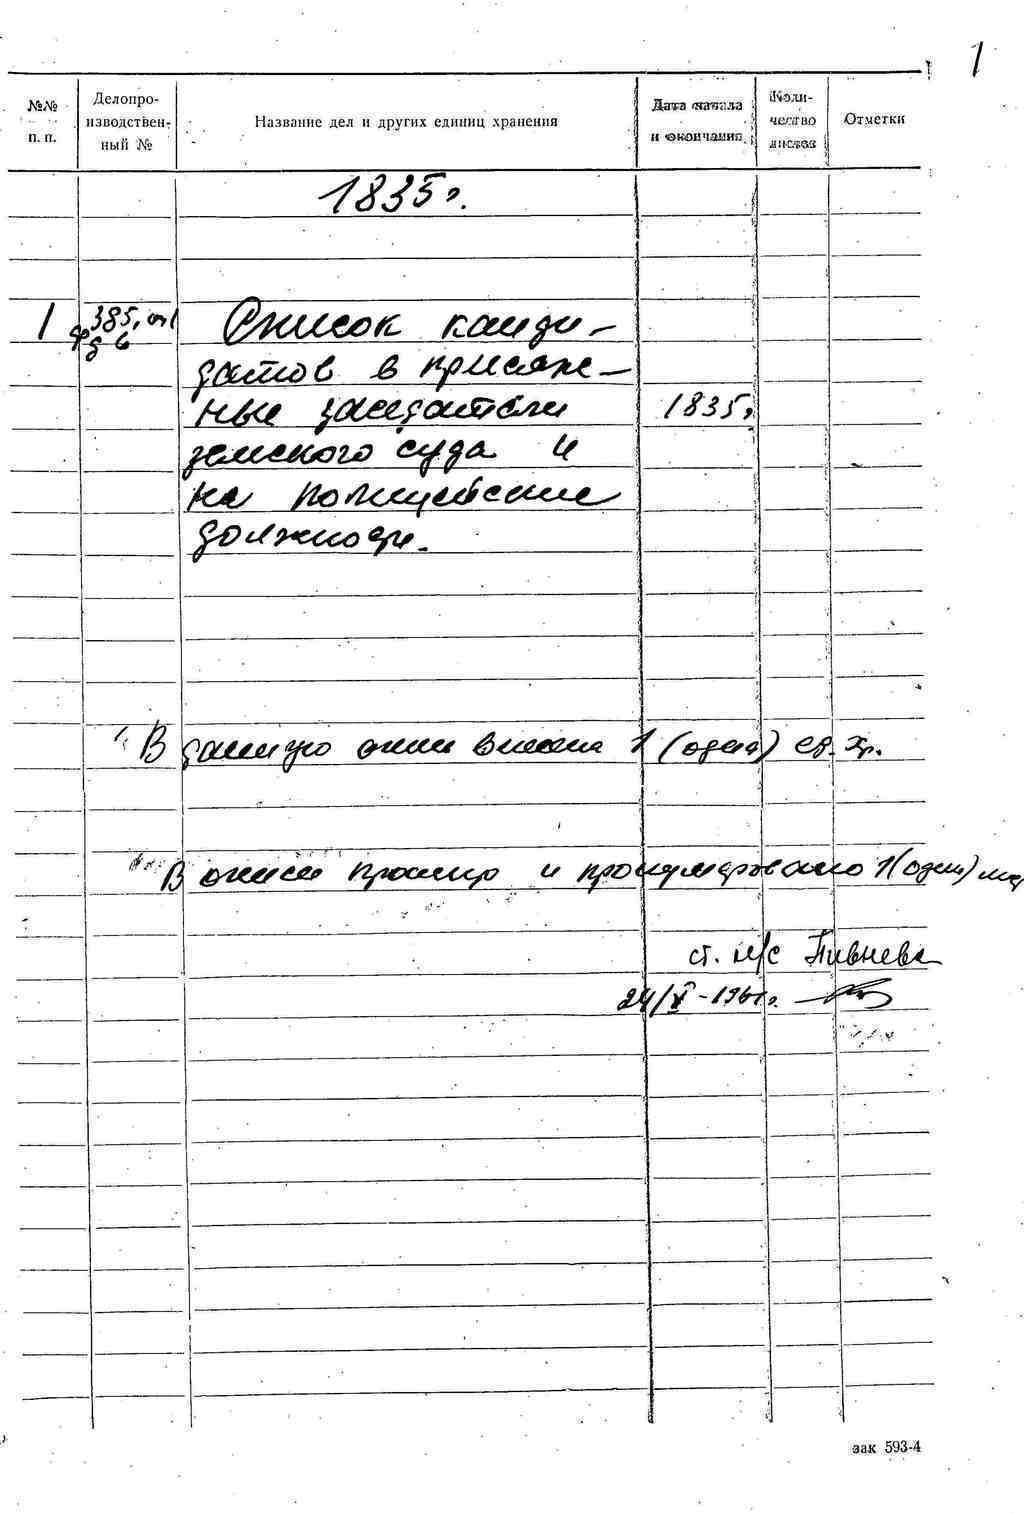 1
№№ п. п. Делопро-изводствен-ный № Название дел и других единиц хранения Дата начала и окончания Коли-чество листов Отметки
1835 г.
1 ф 385, оп 1 д 6 Список канди-
датов в присяж-
ные заседатели 1835 г.
земского суда и
на полицейские
должности.
В данную опись внесена 1 (одна) ед. хр.
В описи прошнур и пронумеровано 1 (один)
ст. н/с Пивнева
24/V-1961 г.
зак 593-4